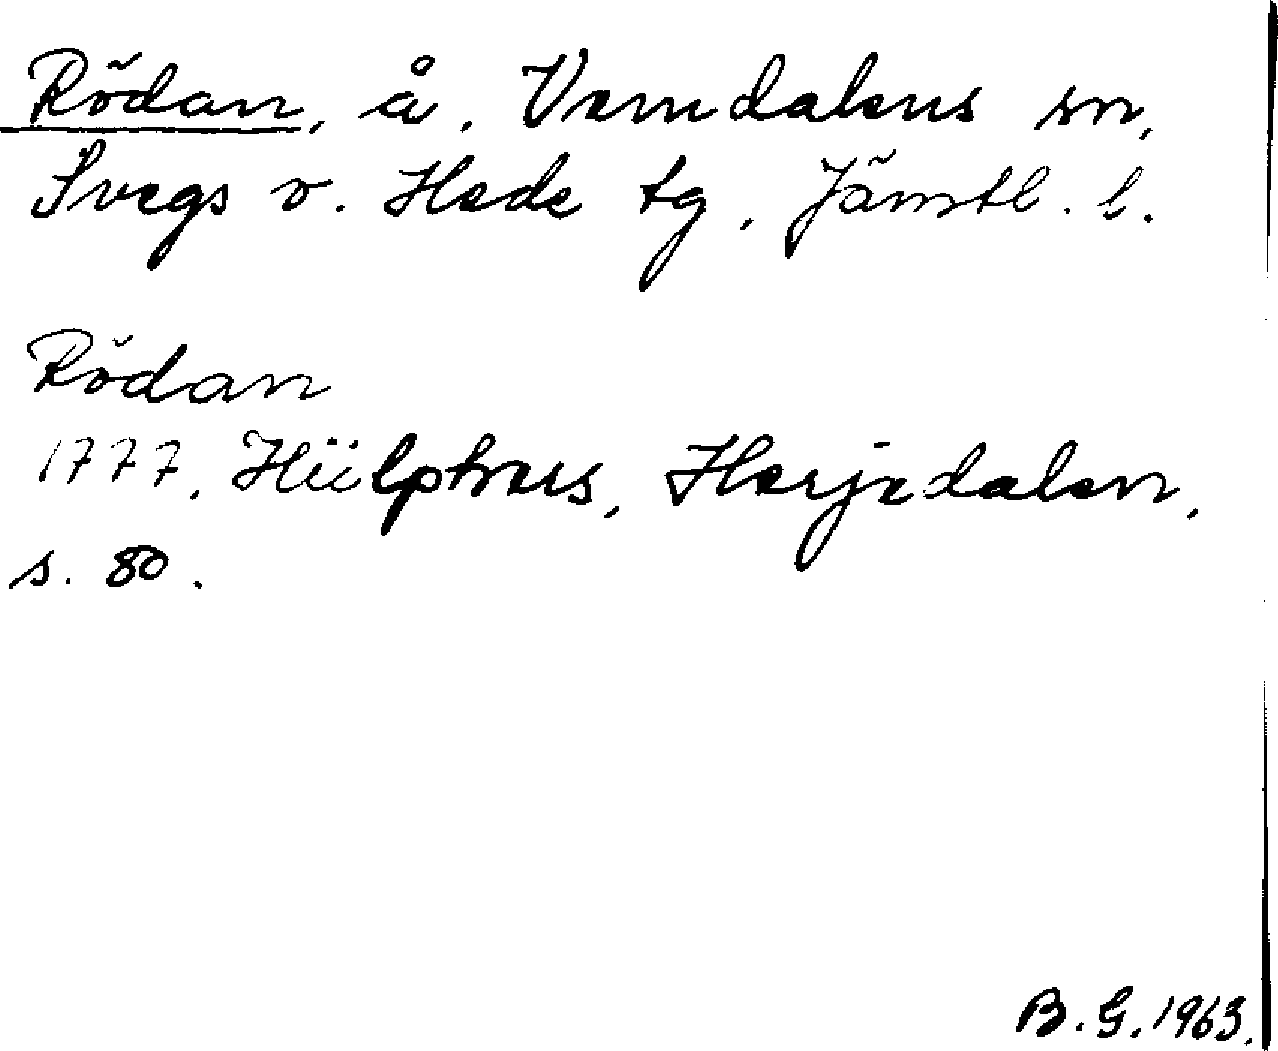 Rödan, å, Vemdalens sn,
Svegs o. Hede tg, Jämtl. l.
Rödan
1777, Hülphers, Herjedalen,
s. 80.
B.G. 1963.